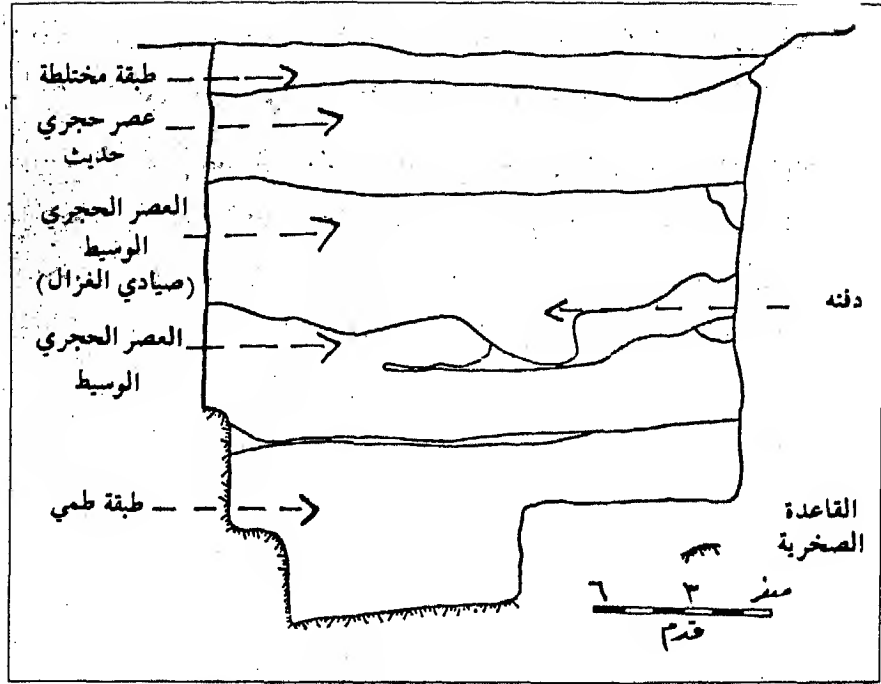 طبقة مختلطة
عصر حجري
حديث
العصر الحجري
الوسيط
(صيادي الغزال)
دفنه
العصر الحجري
الوسيط
طبقة طمي
القاعدة
الصخرية
٦ ٣ صفر
قدم